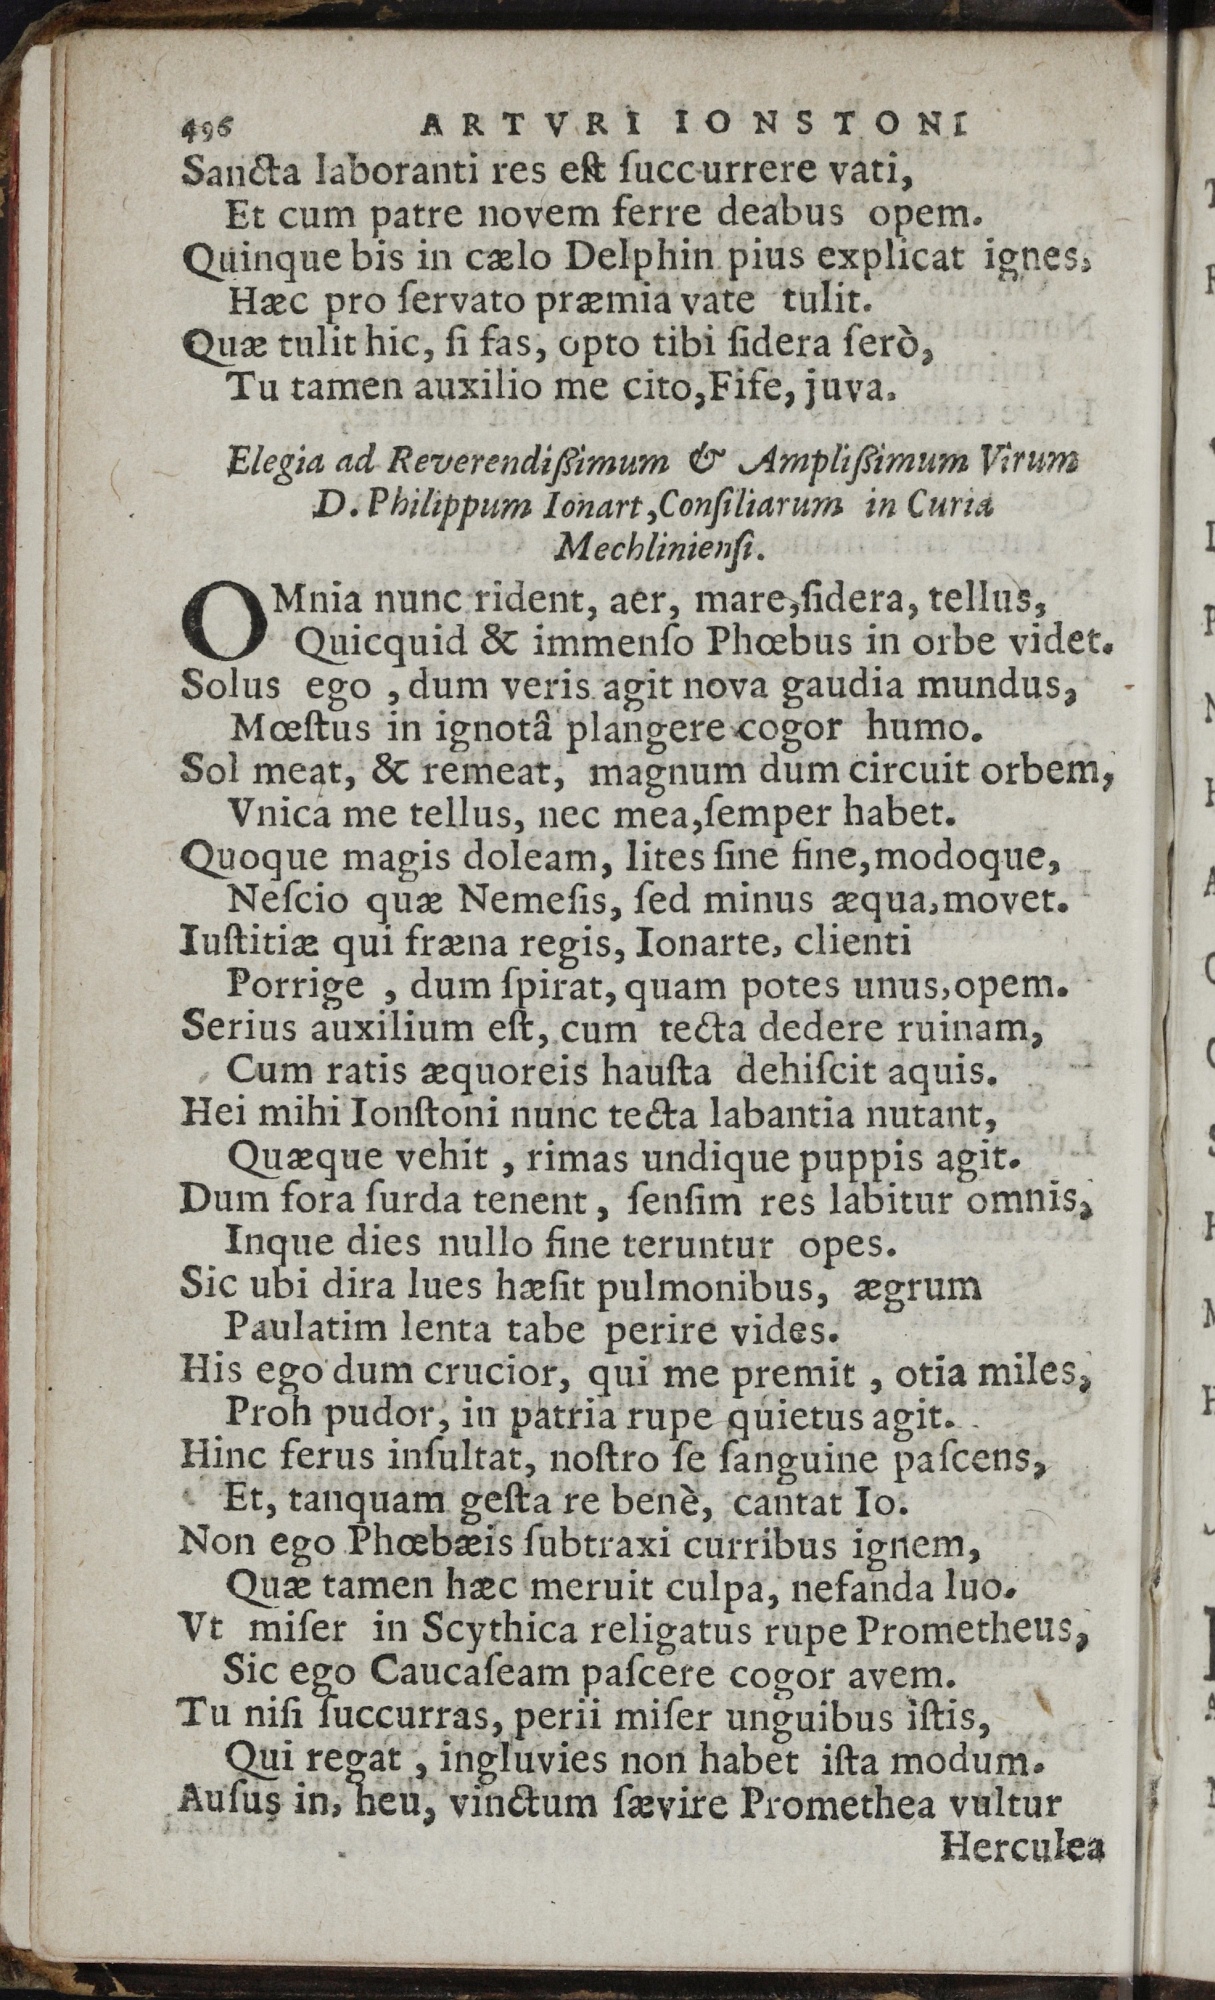 496 ARTVRI IONSTONI
Sancta laboranti res est ſuccurrere vati,
Et cum patre novem ferre deabus opem.
Quinque bis in cælo Delphin pius explicat ignes,
Hæc pro ſervato præmia vate tulit.
Quæ tulit hic, ſi fas, opto tibi ſidera ſerò,
Tu tamen auxilio me cito, Fife, juva.
Elegia ad Reverendißimum & Amplißimum Virum
D. Philippum Ionart, Conſiliarum in Curia
Mechlinienſi.
OMnia nunc rident, aer, mare, ſidera, tellus,
Quicquid & immenſo Phœbus in orbe videt.
Solus ego, dum veris agit nova gaudia mundus,
Mœſtus in ignotâ plangere cogor humo.
Sol meat, & remeat, magnum dum circuit orbem,
Vnica me tellus, nec mea, ſemper habet.
Quoque magis doleam, lites ſine fine, modoque,
Neſcio quæ Nemeſis, ſed minus æqua, movet.
Iuſtitiæ qui fræna regis, Ionarte, clienti
Porrige, dum ſpirat, quam potes unus, opem.
Serius auxilium eſt, cum tecta dedere ruinam,
Cum ratis æquoreis hauſta dehiſcit aquis.
Hei mihi Ionſtoni nunc tecta labantia nutant,
Quæque vehit, rimas undique puppis agit.
Dum fora ſurda tenent, ſenſim res labitur omnis,
Inque dies nullo fine teruntur opes.
Sic ubi dira lues hæſit pulmonibus, ægrum
Paulatim lenta tabe perire vides.
His ego dum crucior, qui me premit, otia miles,
Proh pudor, in patria rupe quietus agit.
Hinc ferus inſultat, noſtro ſe ſanguine paſcens,
Et, tanquam geſta re benè, cantat Io.
Non ego Phœbæis ſubtraxi curribus ignem,
Quæ tamen hæc meruit culpa, nefanda luo.
Vt miſer in Scythica religatus rupe Prometheus,
Sic ego Caucaſeam paſcere cogor avem.
Tu niſi ſuccurras, perii miſer unguibus iſtis,
Qui regat, ingluvies non habet iſta modum.
Auſus in, heu, vinctum ſævire Promethea vultur
Herculea